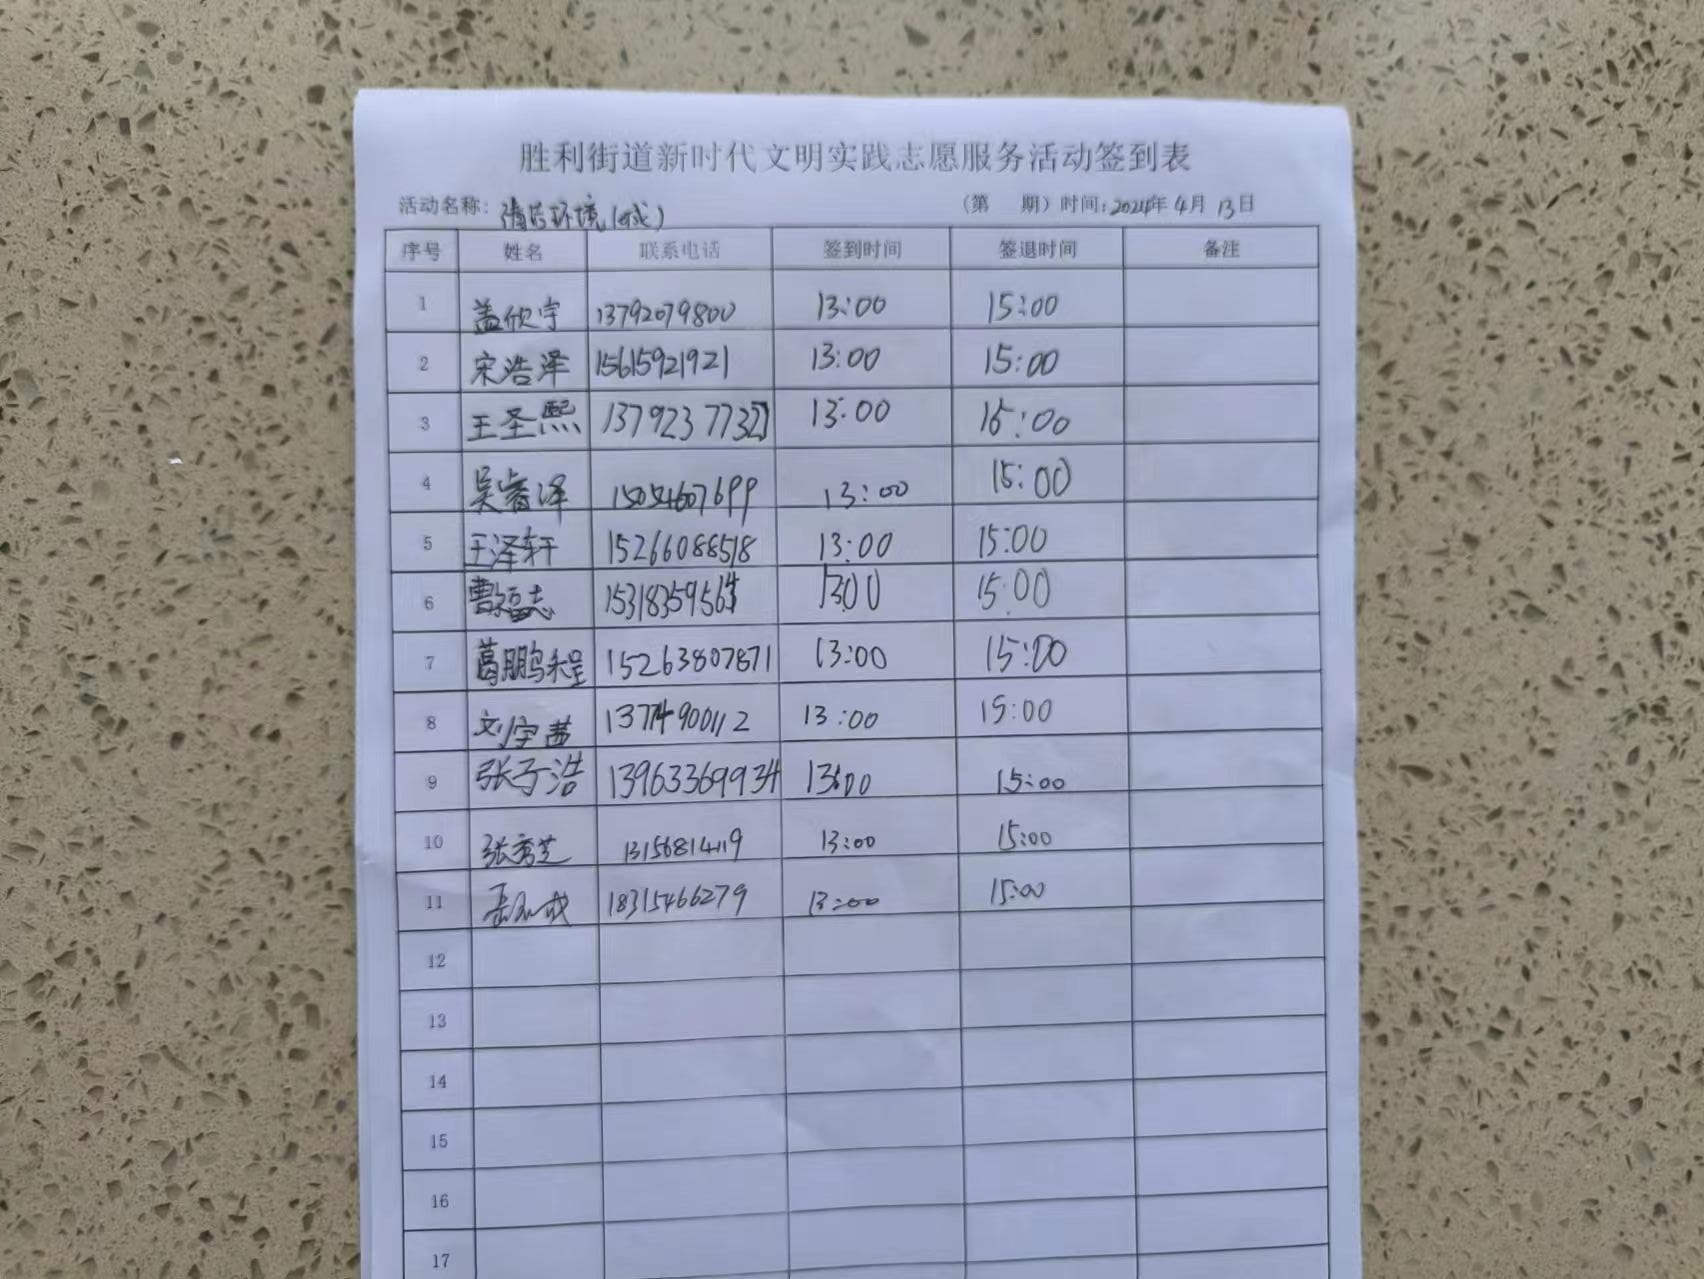 胜利街道新时代文明实践志愿服务活动签到表
活动名称： 环境 （第 期）时间：2024年4月13日
序号 姓名 联系电话 签到时间 签退时间 备注
1 盖欣宇 13792079800 13:00 15:00
2 宋浩泽 15615921921 13:00 15:00
3 王圣熙 1379237732 13:00 15:00
4 吴睿泽 15054607699 13:00 15:00
5 王泽轩 15266088518 13:00 15:00
6 曹福志 1531835956 1300 15:00
7 葛鹏程 15263807871 13:00 15:00
8 刘宇茜 13774900112 13:00 15:00
9 张子浩 13963369934 13:00 15:00
10 张秀芝 13156814119 13:00 15:00
11 18315466279 13:00 15:00
12
13
14
15
16
17